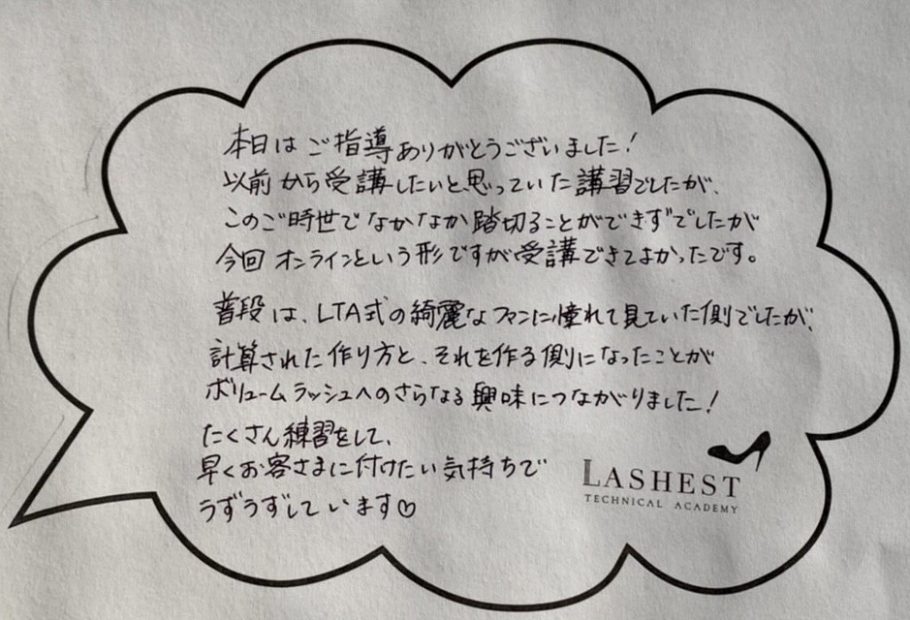 本日はご指導ありがとうございました!
以前から受講したいと思っていた講習でしたが、
このご時世でなかなか踏切ることができずでしたが
今回オンラインという形ですが受講できてよかったです。
普段は、LTA式の綺麗なファンに憧れて見ていた側でしたが、
計算された作り方と、それを作る側になったことが
ボリュームラッシュへのさらなる興味につながりました!
たくさん練習をして、
早くお客さまに付けたい気持ちで
うずうずしています♡
LASHEST
TECHNICAL ACADEMY